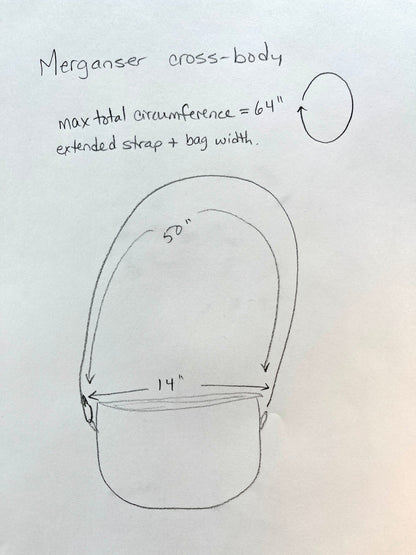 Merganser cross-body
max total circumference = 64"
extended strap + bag width.
50"
14"